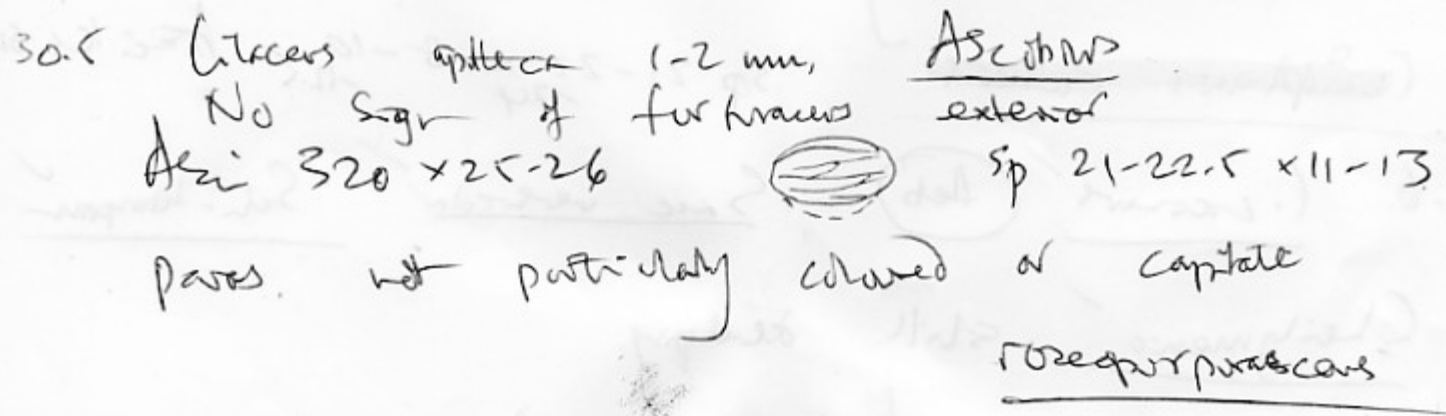 30.5 Lilaceous apothecia 1-2 mm, Ascobolus
No sign of furfuraceous exterior
Asci 320 x 25-26 sp 21-22.5 x 11-13
paras. not particularly coloured or capitate
roseopurpurascens